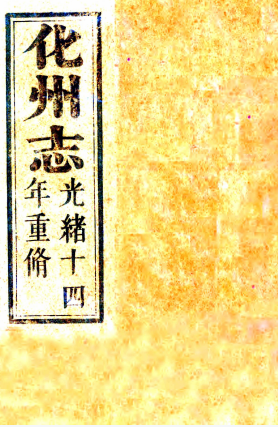 化州志
光緒十四
年重脩